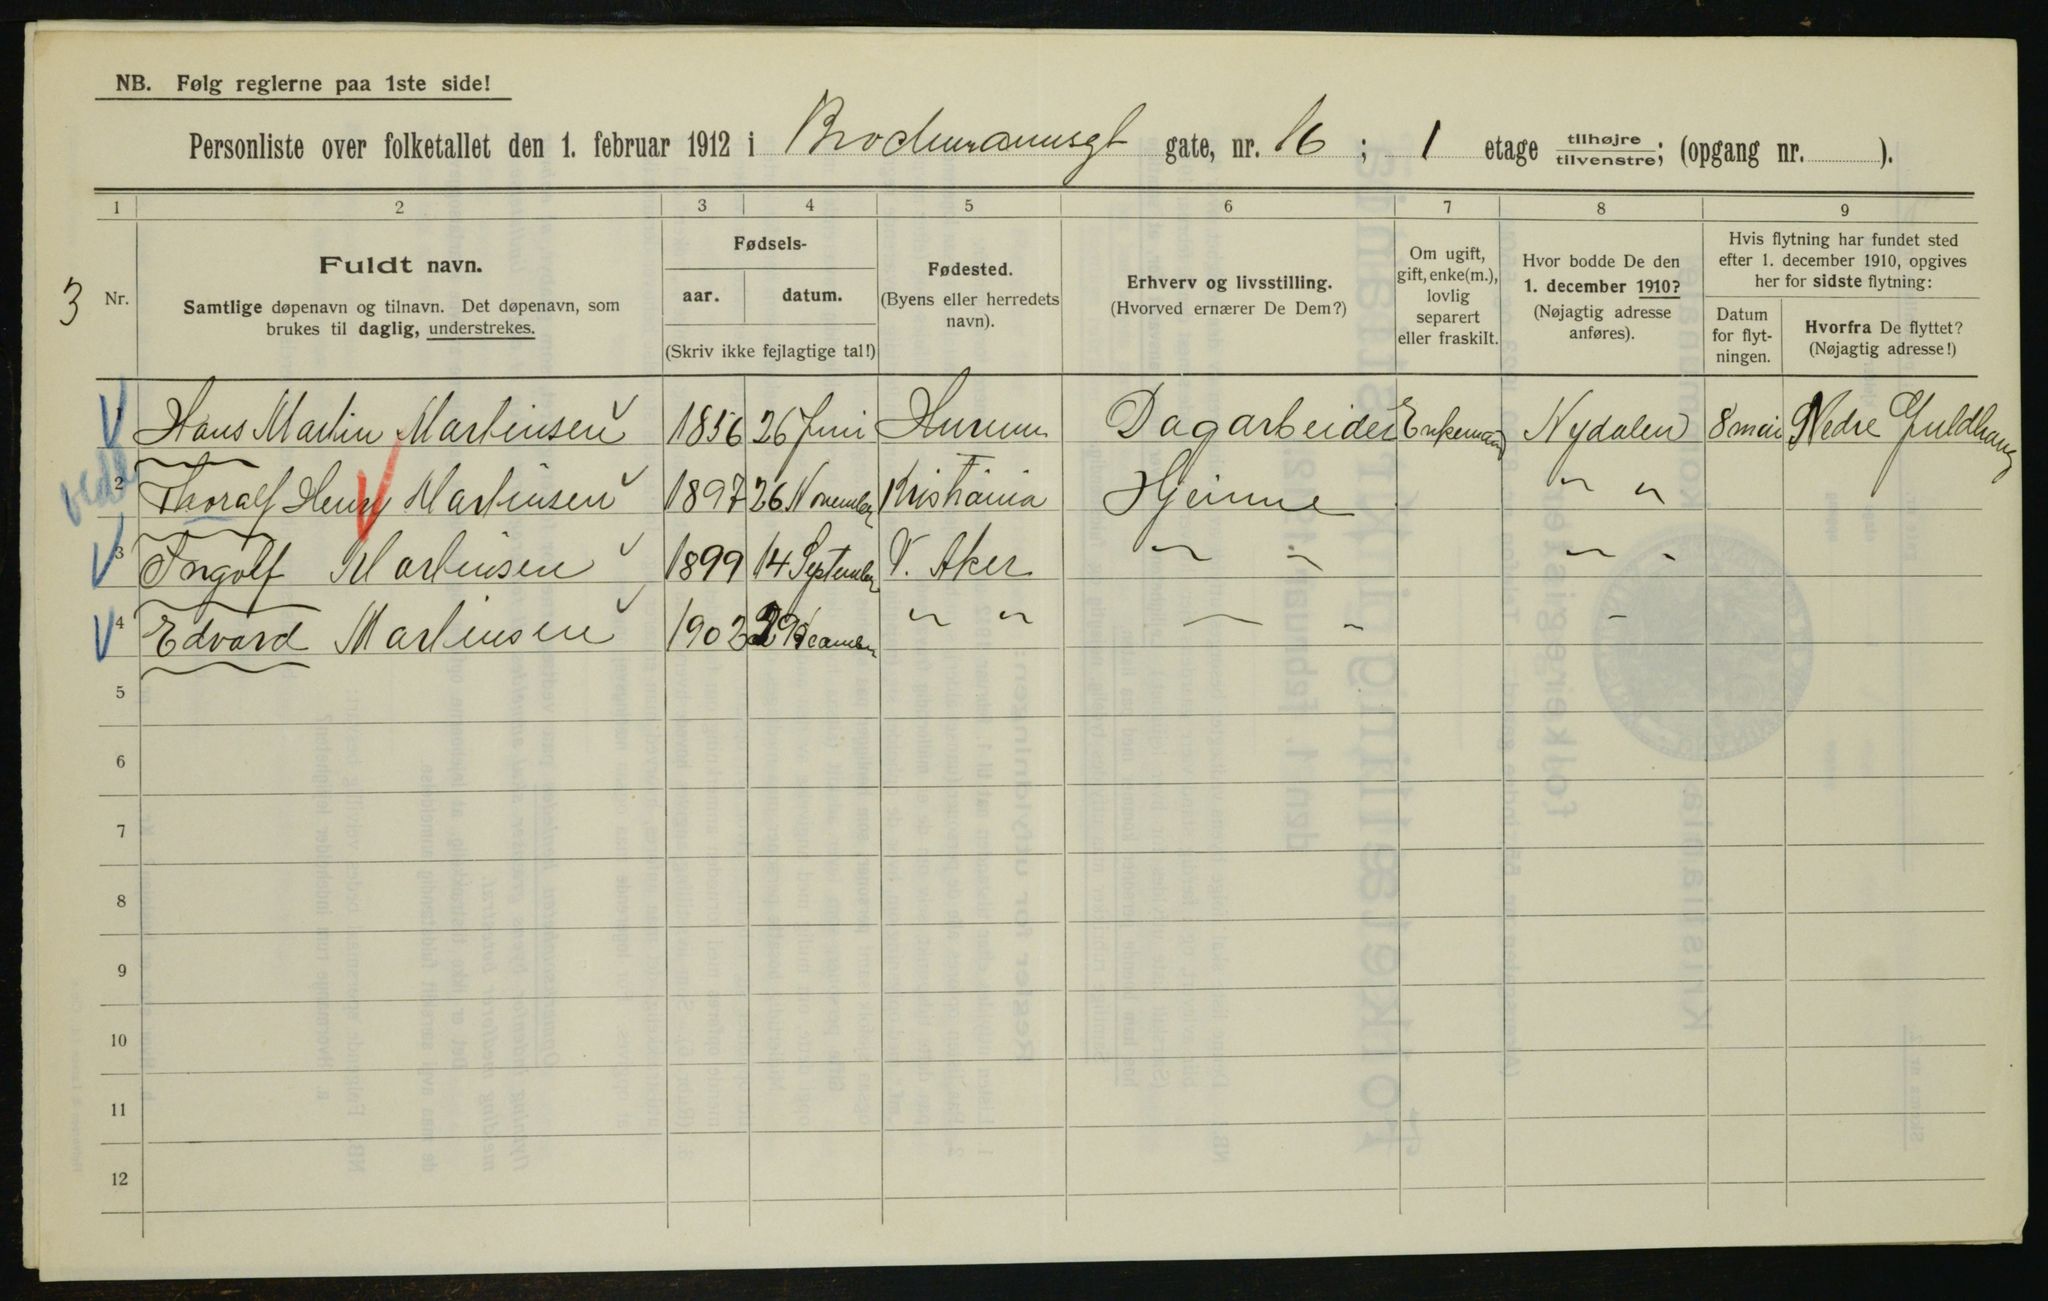 NB. Følg reglerne paa 1ste side!
Personliste over folketallet den 1. februar 1912 i Brochmannsgt gate, nr. 16 ; 1 etage tilhøjre/tilvenstre; (opgang nr. ).
1 2 3 4 5 6 7 8 9
3
Nr.
Fuldt navn.
Samtlige døpenavn og tilnavn. Det døpenavn, som
brukes til daglig, understrekes.
Fødsels-
aar. datum.
(Skriv ikke fejlagtige tal!)
Fødested.
(Byens eller herredets
navn).
Erhverv og livsstilling.
(Hvorved ernærer De Dem?)
Om ugift,
gift, enke(m.),
lovlig
separert
eller fraskilt.
Hvor bodde De den
1. december 1910?
(Nøjagtig adresse
anføres).
Hvis flytning har fundet sted
efter 1. december 1910, opgives
her for sidste flytning:
Datum
for flyt-
ningen.
Hvorfra De flyttet?
(Nøjagtig adresse!)
1 Hans Martin Martinsen 1856 26 Juni Hurum Dagarbeider Enkemand Nydalen 8 mai Nedre Guldhaug
2 Thoralf Henr Martinsen 1897 26 November Kristiania Hjemme " "
3 Ingolf Martinsen 1899 14 September V. Aker " " " "
4 Edvard Martinsen 1902 29 " " " " "
5
6
7
8
9
10
11
12